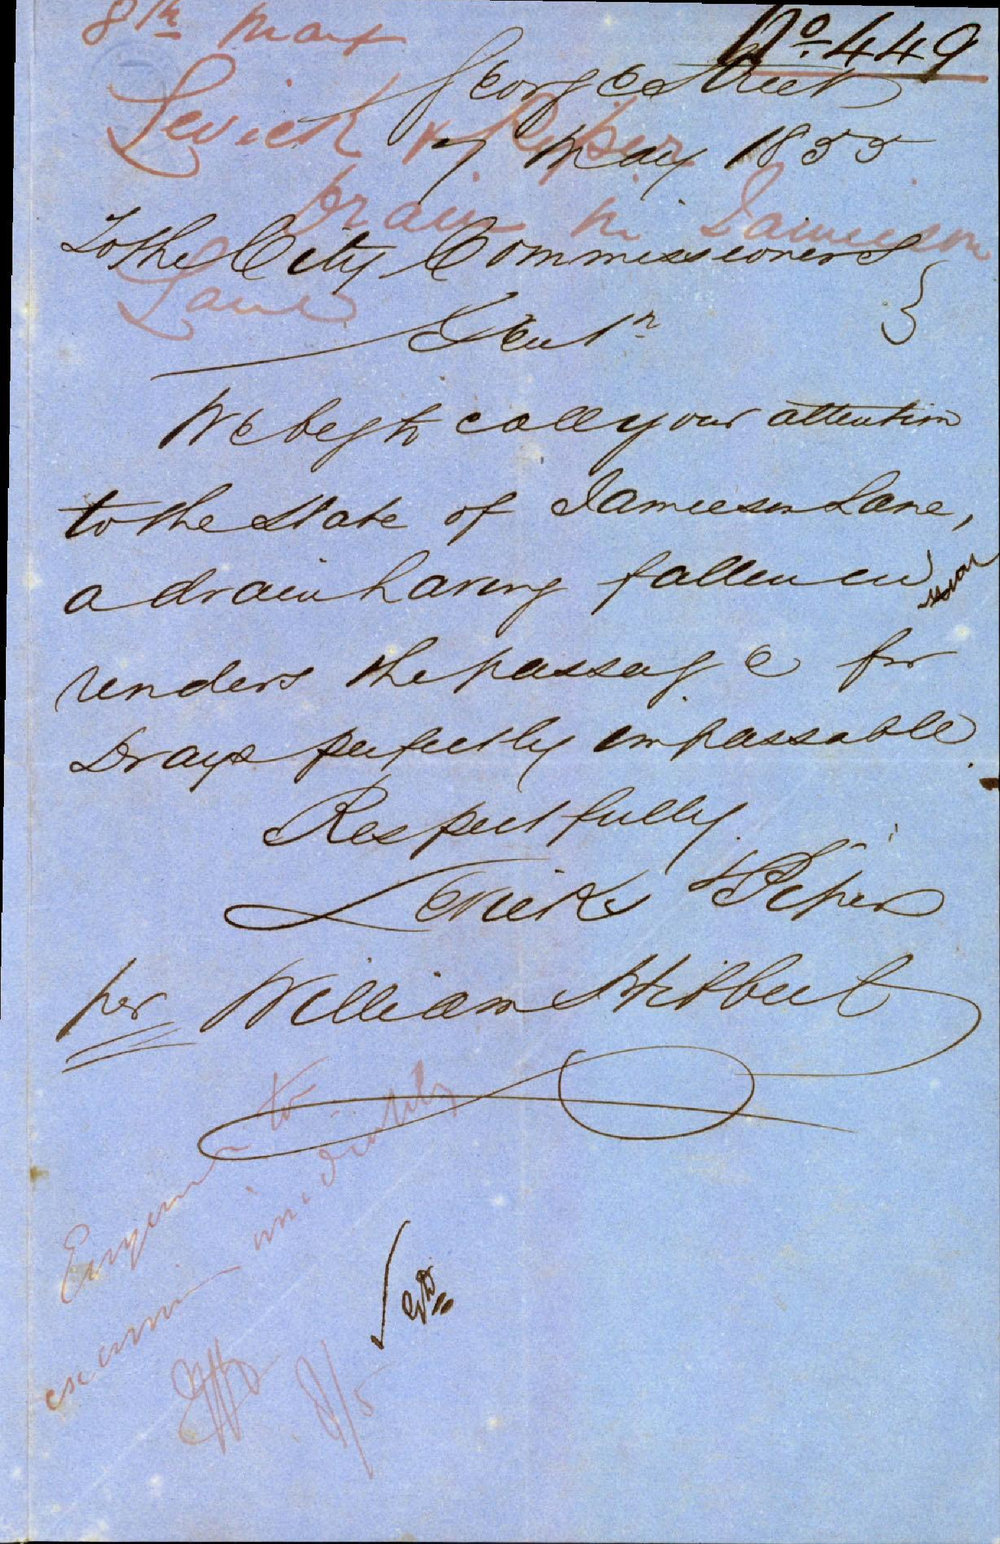 8th May
No. 449
Levick & Piper
drain in Jamieson
Lane
George Street
7 May 1855
To the City Commissioners
Gentn
We beg to call your attention
to the state of Jamieson Lane,
a drain having fallen in
renders the passage for
Drays perfectly impassable.
Respectfully
Levick & Piper
per William
Engineer to
examine immediately
8/5